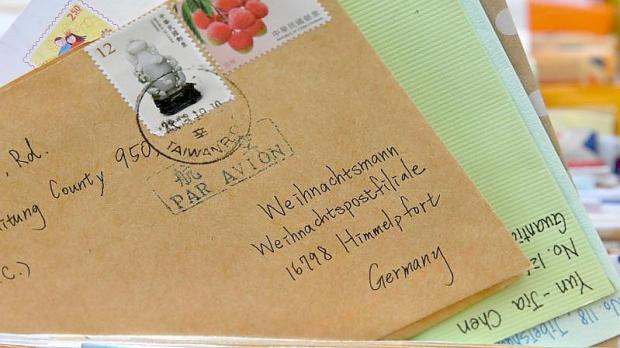 250
12
中華民國郵票
TAIWAN
航
PAR AVION
, Rd.
itung County 950
C.)
Weihnachtsmann
Weihnachtspostfiliale
16798 Himmelpfort
Germany
Yun-Jia Chen
No.
No. 118,